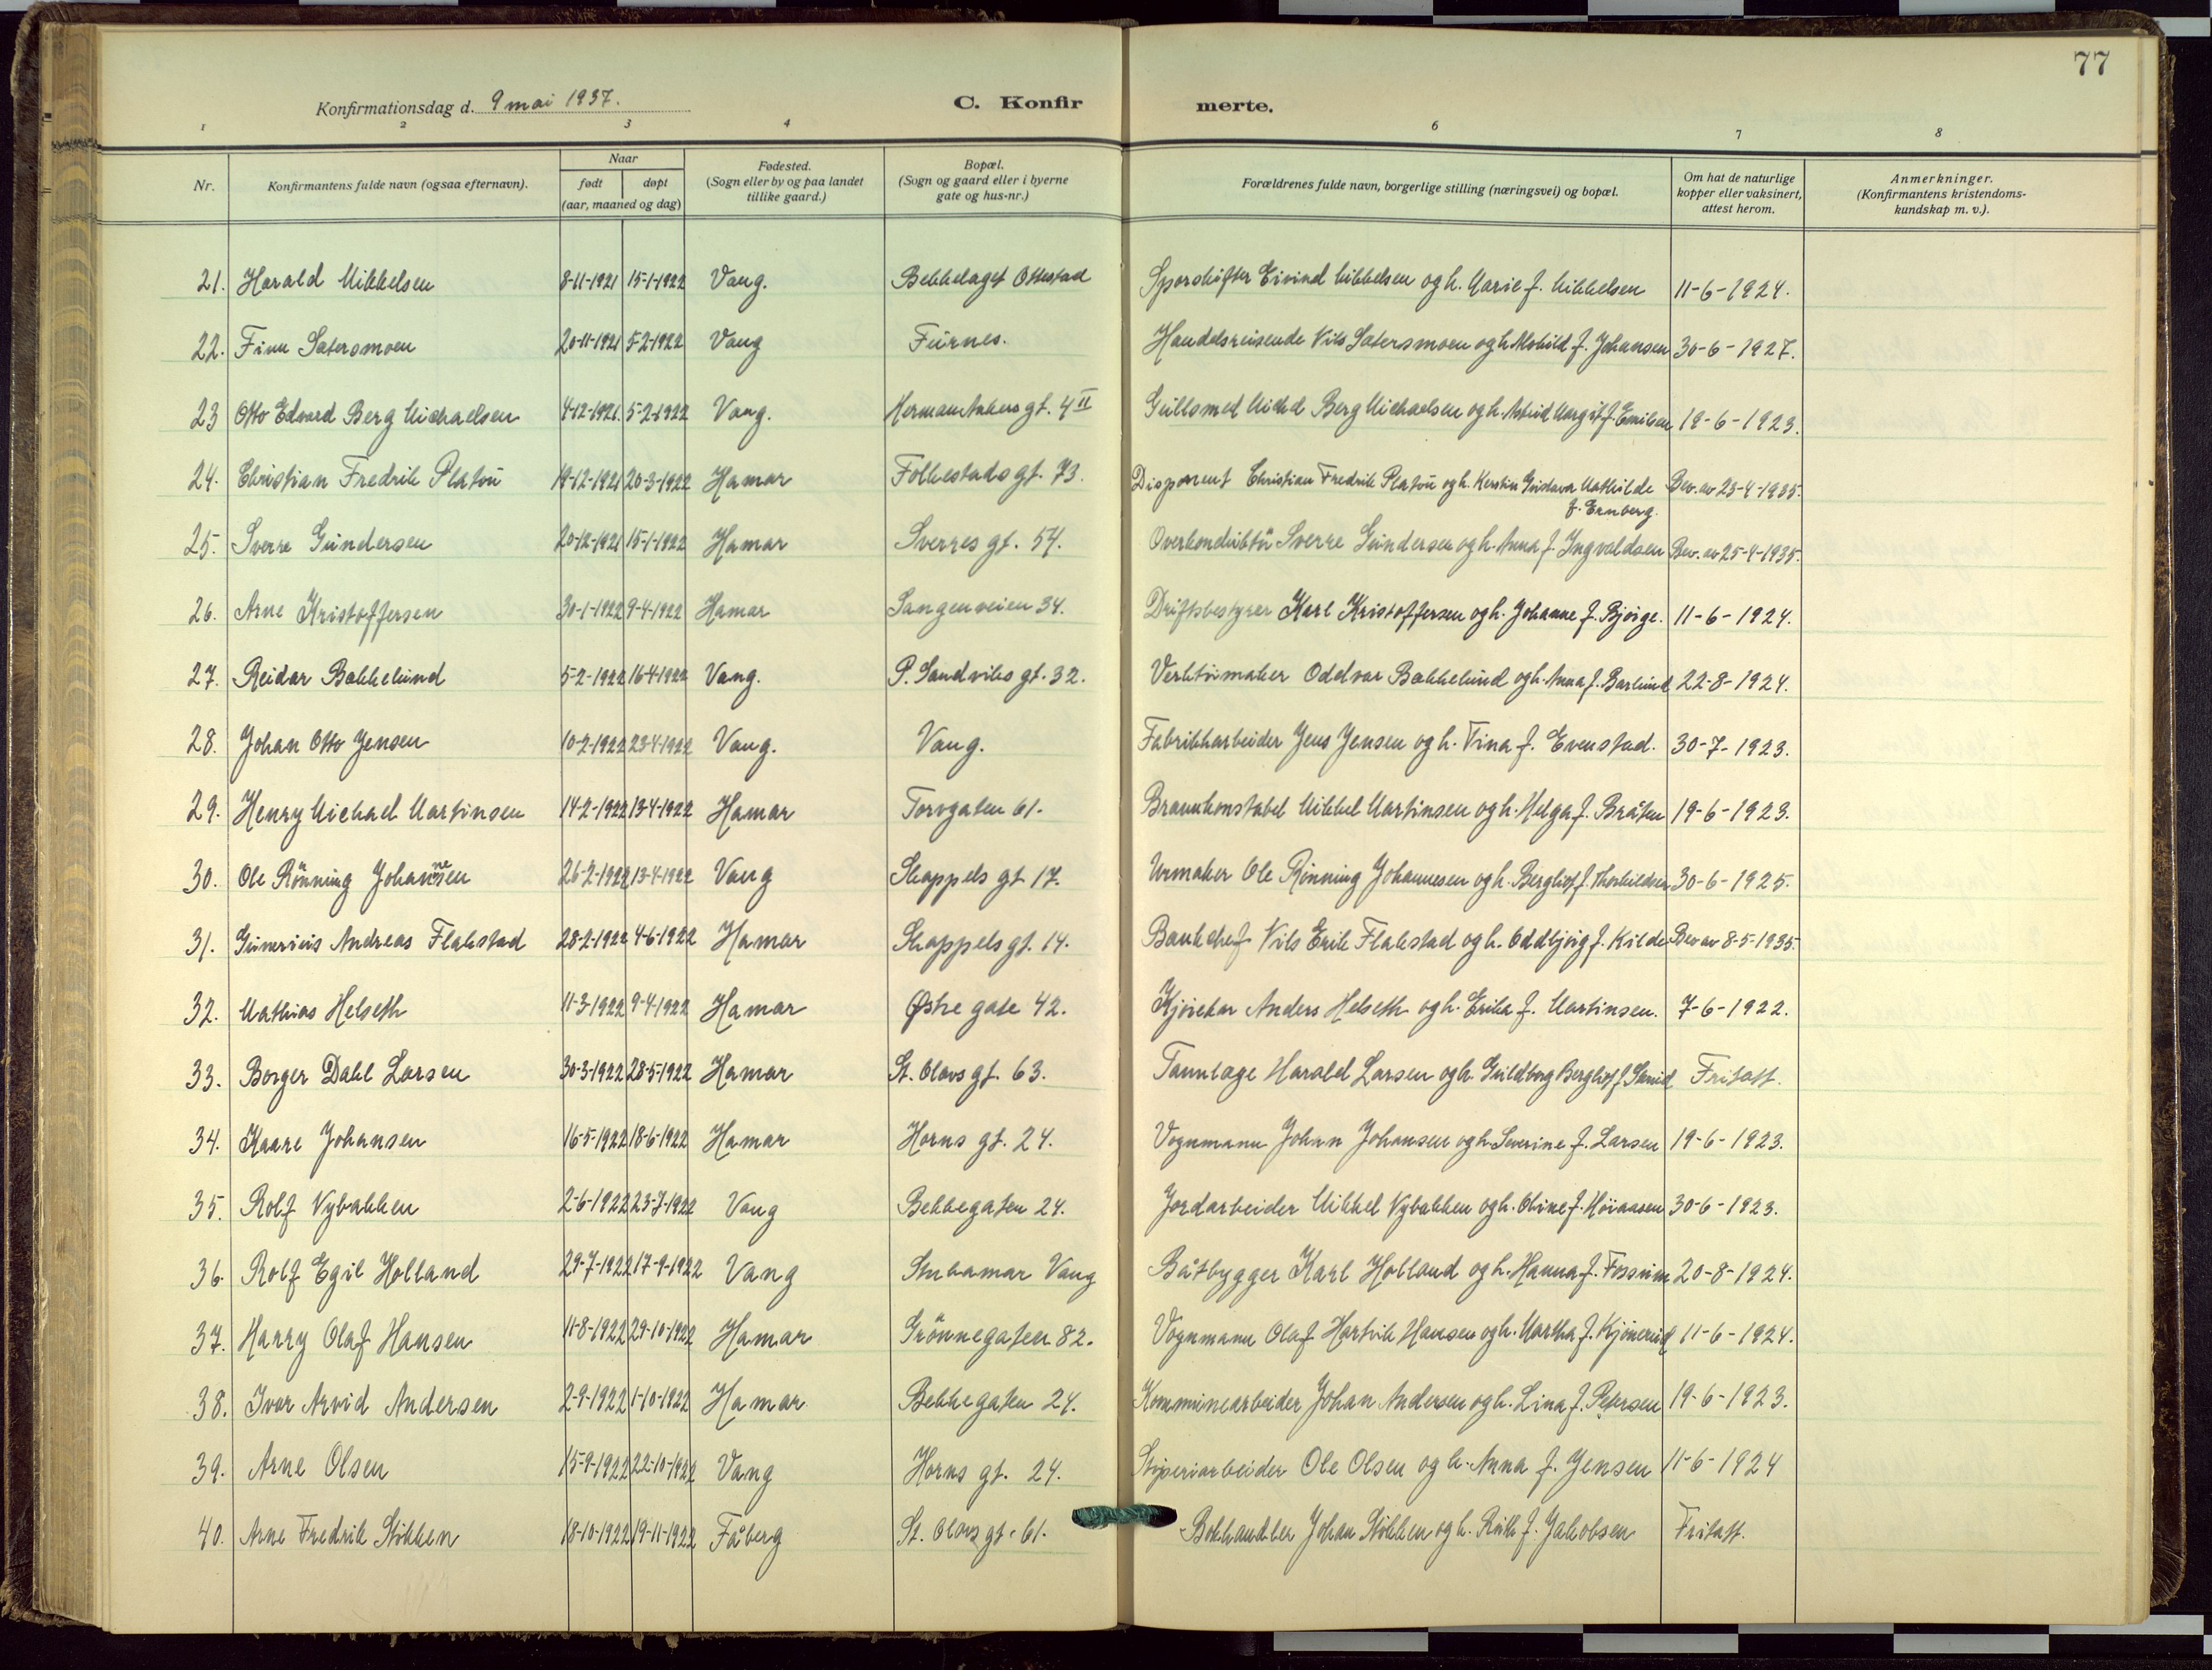 77
Konfirmationsdag d. 9 mai 1937. C. Konfir merte.
1 2 3 4 6 7 8
Nr. Konfirmantens fulde navn (ogsaa efternavn). Naar født døpt (aar, maaned og dag) Fødested. (Sogn eller by og paa landet tillike gaard.) Bopæl. (Sogn og gaard eller i byerne gate og hus-nr.) Forældrenes fulde navn, borgerlige stilling (næringsvei) og bopæl. Om hat de naturlige kopper eller vaksinert, attest herom. Anmerkninger. (Konfirmantens kristendoms-kundskap m. v.).
21. Harald Mikkelsen 8-11-1921 15-1-1922 Vang. Bekkelaget Ottestad Sporskifter Eivind Mikkelsen og h. Marie f. Mikkelsen 11-6-1924.
22. Finn Sætersmoen 20-11-1921 5-2-1922 Vang Furnes. Handelsreisende Nils Sætersmoen og h. f. Johansen 30-6-1927.
23 Otto Edvard Berg Michaelsen 4-12-1921. 5-2-1922 Vang. Herman Ankers gt. 4 II Gullsmed Berg Michaelsen og h. Astrid Margit f. Emilsen 19-6-1923.
24. Christian Fredrik Platou 19-12-1921 20-3-1922 Hamar Folkestads gt. 73. Disponent Christian Fredrik Platou og h. Kerstin Gustava Mathilde Bev. av 23-4-1935.
f. Ernberg.
25. Sverre Gundersen 20-12-1921 15-1-1922 Hamar Sverres gt. 54. Overkonduktør Sverre Gundersen og h. Anna f. Ingvaldsen Bev. av 25-4-1935.
26. Arne Kristoffersen 30-1-1922 9-4-1922 Hamar Sangenveien 34. Driftsbestyrer Karl Kristoffersen og h. Johanne f. Bjørge. 11-6-1924.
27. Reidar Bakkelund 5-2-1922 16-4-1922 Vang. P. Sandviks gt. 32. Verktøimaker Oddvar Bakkelund og h. Anna f. Barlund 22-8-1924.
28. Johan Otto Jensen 10-2-1922 23-4-1922 Vang. Vang. Fabrikkarbeider Jens Jensen og h. Tina f. Evenstad. 30-7-1923.
29. Henry Michael Martinsen 14-2-1922 13-4-1922 Hamar Torvgaten 61. Brannkonstabel Mikkel Martinsen og h. Helga f. Bråten 19-6-1923.
30. Ole Rönning Johannesen 26-2-1922 13-4-1922 Vang Skappels gt 17. Urmaker Ole Rönning Johannesen og h. Bergliot f. Thorkildsen 30-6-1925.
31. Gunerius Andreas Flakstad 28-2-1922 4-6-1922 Hamar Skappels gt. 14. Bankchef Nils Erik Flakstad og h. Oddbjørg f. Kilde Bev av 8-5-1935.
32. Mathias Helseth 11-3-1922 9-4-1922 Hamar Østre gate 42. Kjørekar Anders Helseth og h. Erika f. Martinsen. 7-6-1922.
33. Borger Dahl Larsen 30-3-1922 28-5-1922 Hamar St. Olavs gt. 63. Tannlæge Harald Larsen og h. Guldborg Bergliot f. Fritatt.
34. Kaare Johansen 16-5-1922 18-6-1922 Hamar Horns gt. 24. Vognmann Johan Johansen og h. Severine f. Larsen 19-6-1923.
35. Rolf Nybakken 2-6-1922 23-7-1922 Vang Bekkegaten 24. Jordarbeider Mikkel Nybakken og h. Oline f. Høiaasen 30-6-1923.
36. Rolf Egil Holland 29-7-1922 17-9-1922 Vang Vang Båtbygger Karl Holland og h. Hanna f. Fossum 20-8-1924.
37. Harry Olaf Hansen 11-8-1922 29-10-1922 Hamar Grönnegaten 82. Vognmann Olaf Hartvik Hansen og h. Martha f. Kjönerud 11-6-1924.
38. Ivar Arvid Andersen 2-9-1922 1-10-1922 Hamar Bekkegaten 24. Kommunearbeider Johan Andersen og h. Lina f. Petersen 19-6-1923.
39. Arne Olsen 15-9-1922 22-10-1922 Vang Horns gt. 24. Støperiarbeider Ole Olsen og h. Anna f. Jensen 11-6-1924
40. Arne Fredrik Stikken 18-10-1922 19-11-1922 Fåberg St. Olavs gt. 61. Bokhandler Johan Stikken og h. Ruth f. Jakobsen Fritatt.